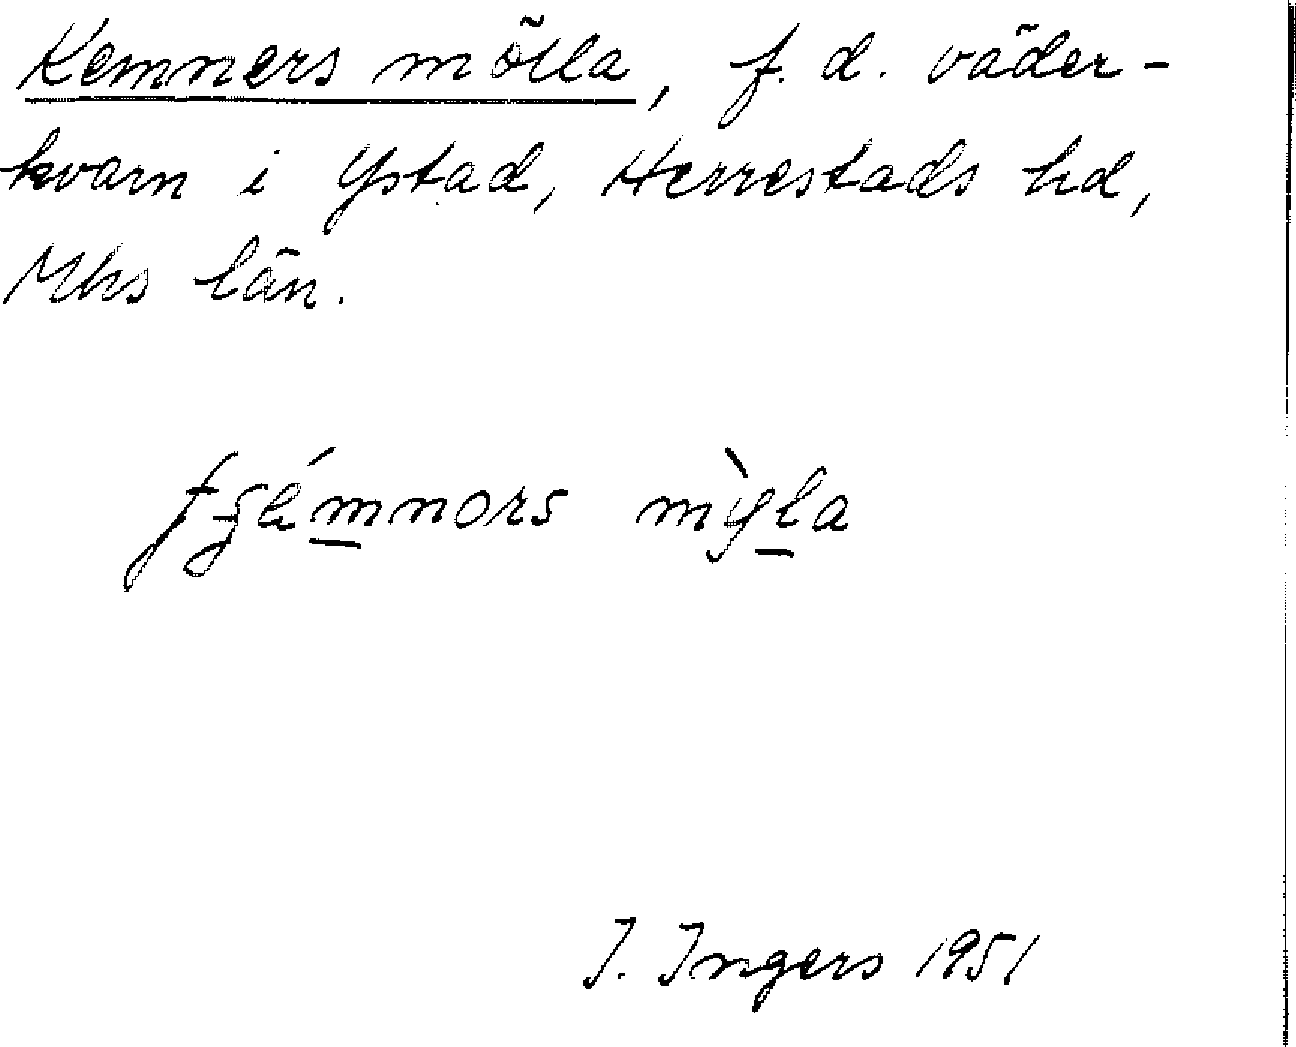 Kemners mölla, f.d. väder-
kvarn i Ystad, Herrestads hd,
Mhs län.
mỳla
I. Ingers 1951